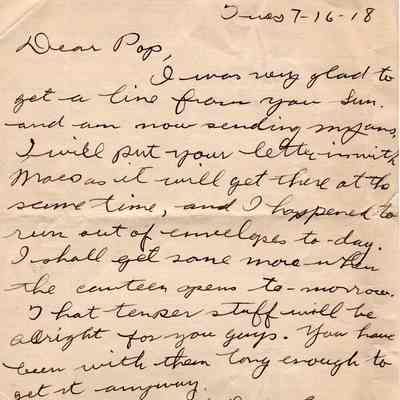 Tues 7-16-18
Dear Pop,
I was very glad to
get a line from you Sun.
and am now sending my ans.
I will put your letter in with
Maes as it will get there at the
same time, and I happened to
run out of envelopes to-day.
I shall get some more when
the canteen opens to-morrow.
That stuff will be
alright for you guys. You have
been with them long enough to
get it anyway.